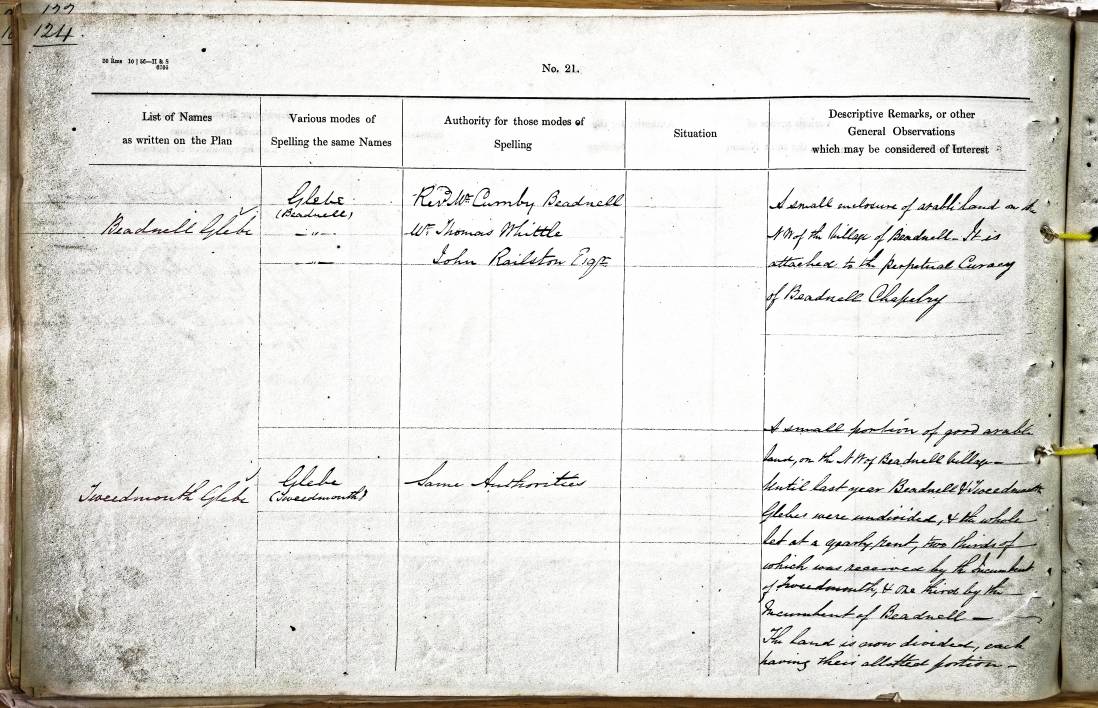 124
No. 21.
List of Names
as written on the Plan
Various modes of
Spelling the same Names
Authority for those modes of
Spelling
Situation
Descriptive Remarks, or other
General Observations
which may be considered of Interest
Beadnell Glebe
Glebe
(Beadnell)
— " —
— " —
Revd. Mr. Cumby Beadnell
Mr. Thomas Whittle
John Railston Esqre.
A small inclosure of arable land on the
NW of the Village of Beadnell - It is
attached to the Perpetual Curacy
of Beadnell Chapelry
Tweedmouth Glebe
Glebe
(Tweedmouth)
Same Authorities
A small portion of good arable
land, on the NW of Beadnell Village —
Until last year Beadnell & Tweedmouth
Glebes were undivided, & the whole
let at a yearly rent, two thirds of
which was received by the Incumbent
of Tweedmouth, & one third by the
Incumbent of Beadnell —
The land is now divided, each
having their allotted portion —